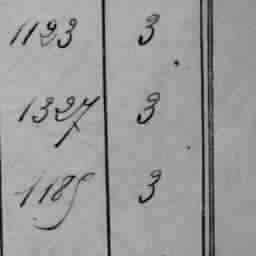 1123 3
1327 3
1189 3